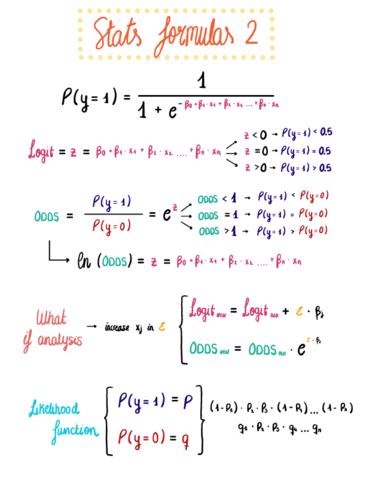 Stats formulas 2
P(y=1) = 1 / 1 + e^-β₀+β₁·x₁+β₂·x₂....+βₙ·xₙ
Logit = z = β₀+β₁·x₁+β₂·x₂....+βₙ·xₙ
z < 0 → P(y=1) < 0.5
z = 0 → P(y=1) = 0.5
z > 0 → P(y=1) > 0.5
ODDS = P(y=1) / P(y=0) = e^z
ODDS < 1 → P(y=1) < P(y=0)
ODDS = 1 → P(y=1) = P(y=0)
ODDS > 1 → P(y=1) > P(y=0)
ln (ODDS) = z = β₀+β₁·x₁+β₂·x₂....+βₙ·xₙ
What
if analysis
→ increase xj in ε
Logit = Logit + ε · βj
ODDS = ODDS · e^ε·βj
Likelihood
function
P(y=1) = p
P(y=0) = q